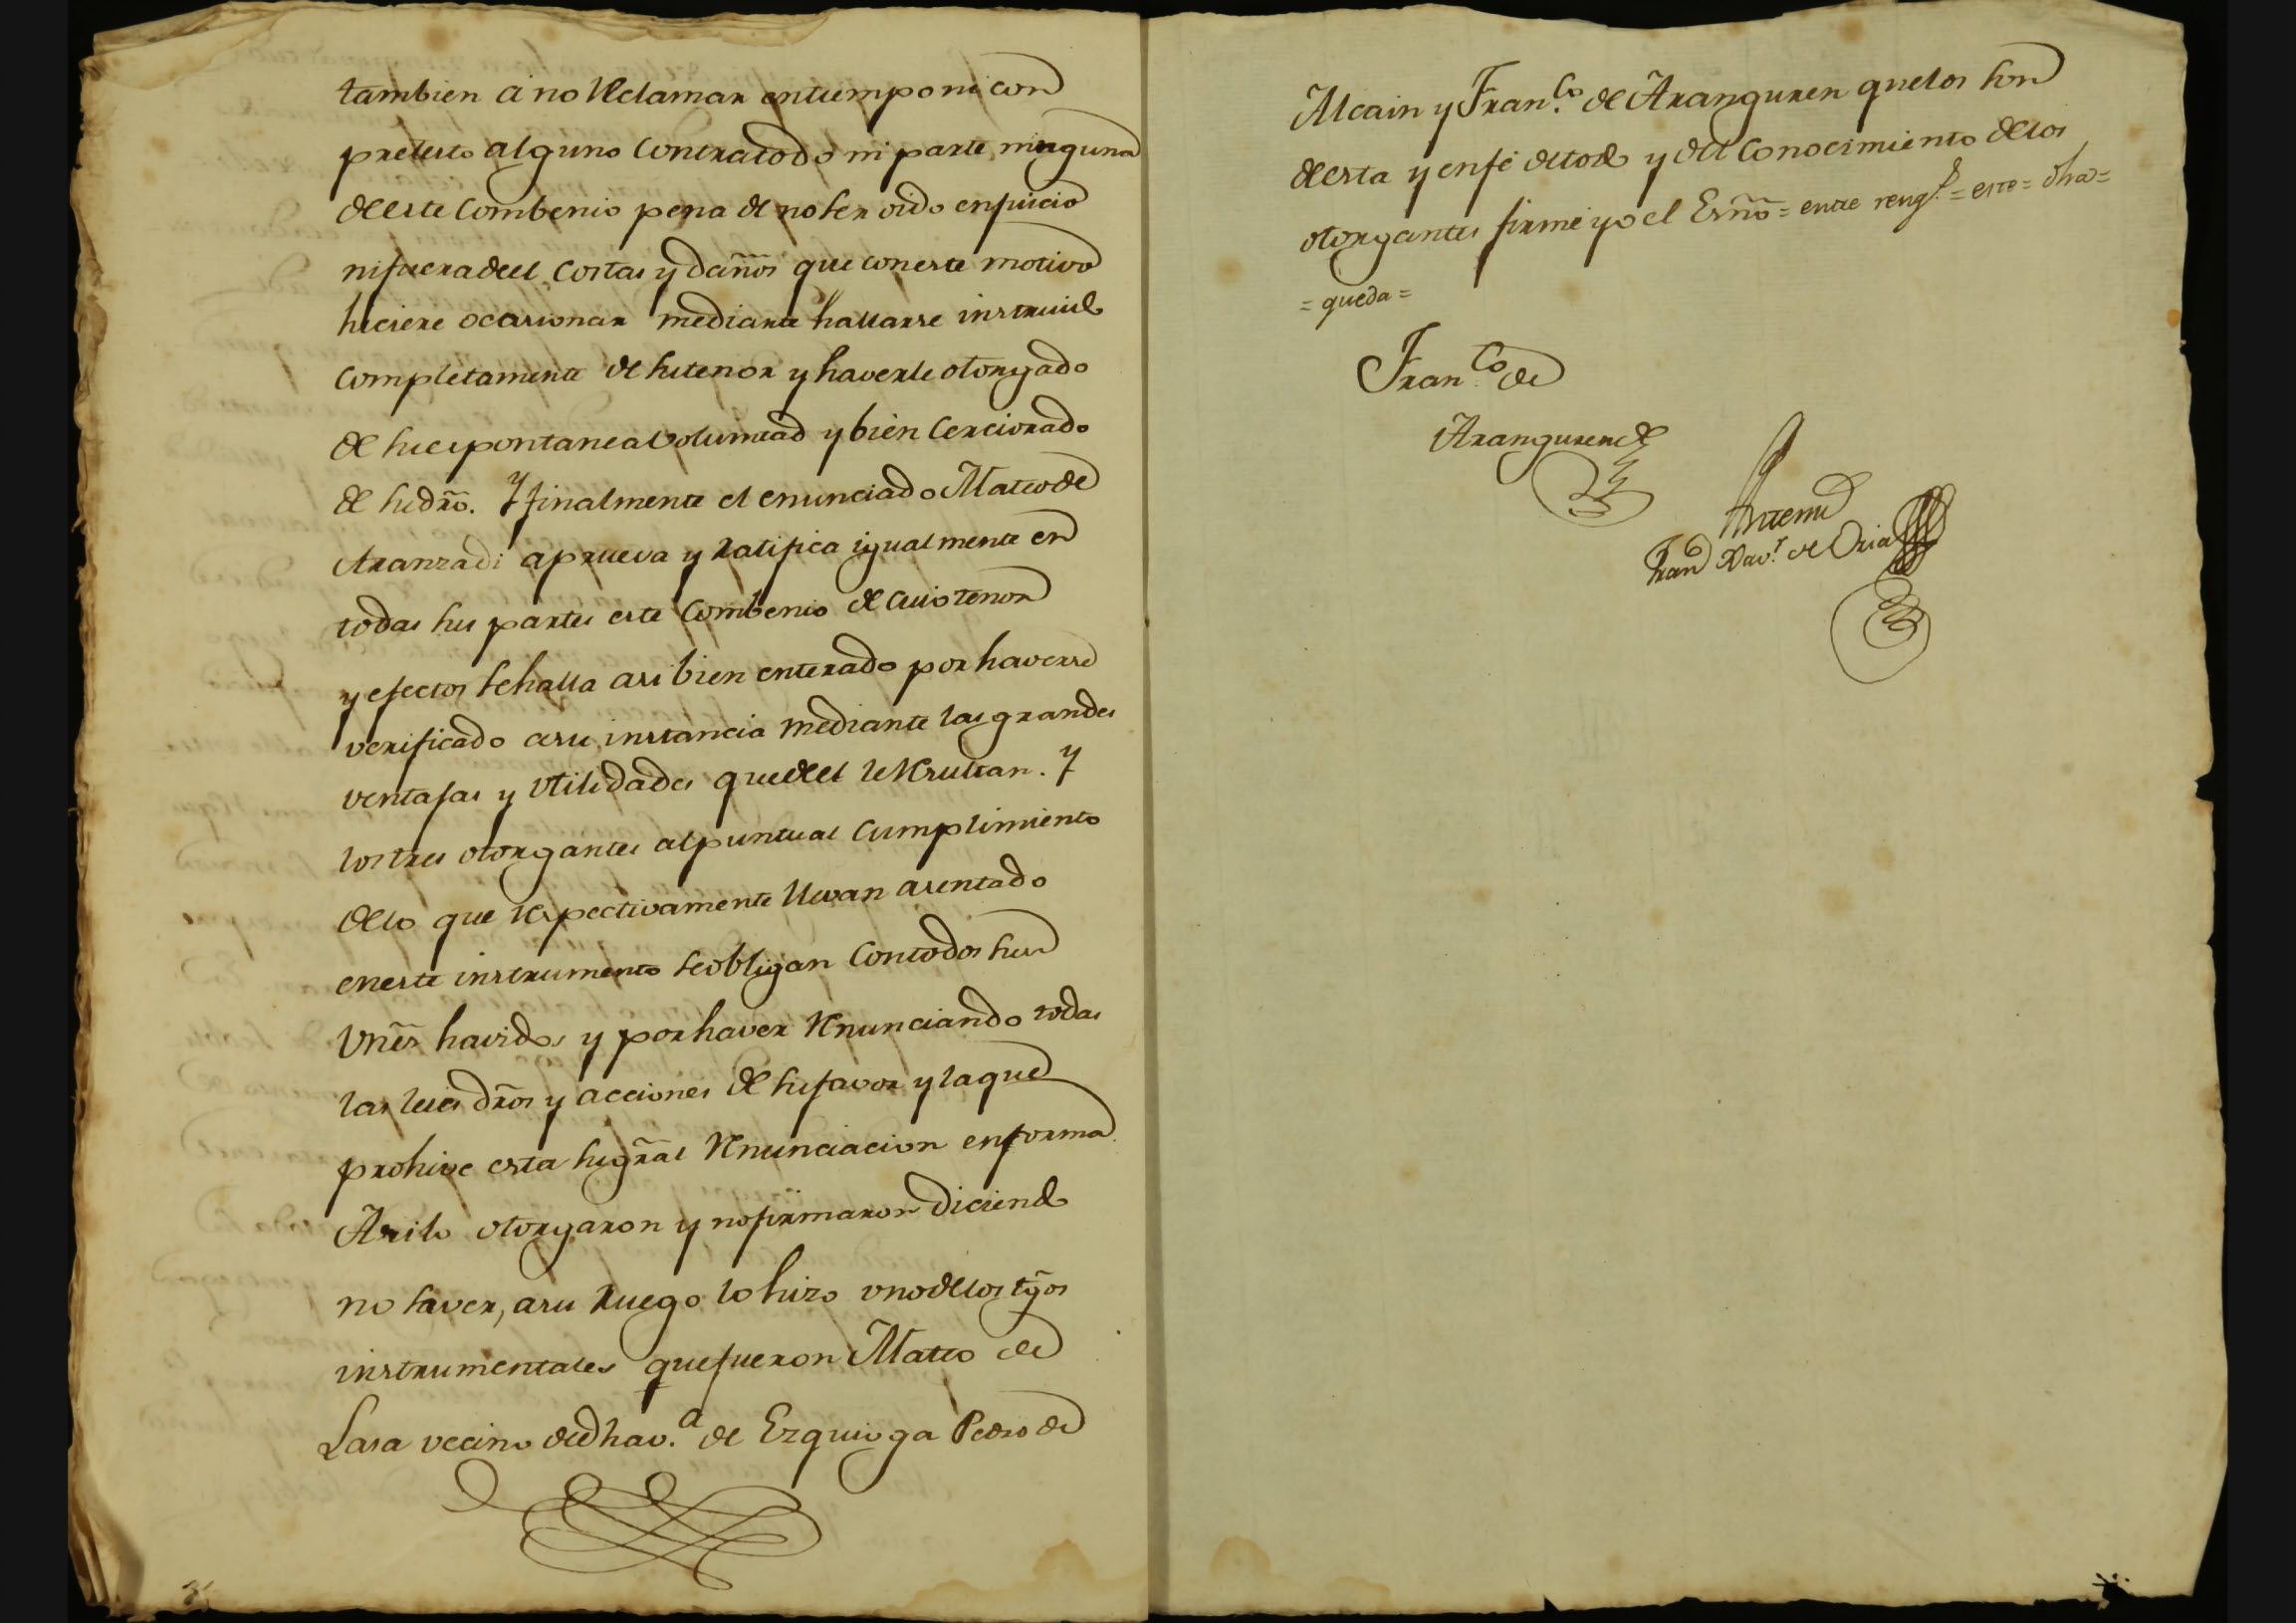 tambien á no Reclamar en tiempo ni con
pretesto alguno contra todo ni parte ninguna
de este combenio pena de no ser oido en juicio
ni fuera de el costas y daños que con este motivo
hiciere ocasionar mediante hallarse instruido
completamente de su tenor y haverle otorgado
de su espontanea voluntad y bien cerciorado
de su dr̃o. Y finalmente el enunciado Mateo de
Aranzadi aprueva y ratifica igualmente en
todas sus partes este combenio de cuio tenor
y efectos se halla asi bien enterado por haverse
verificado a su instancia mediante las grandes
ventajas y vtilidades que de el le Resultan. Y
los tres otorgantes al puntual cumplimiento
de lo que Respectivamente llevan asentado
en este instrumento se obligan con todos sus
vñes havidos y por haver Renunciando todas
las leies dr̃os y acciones de su favor y la que
prohive esta su gr̃al Renunciacion en forma
Asi lo otorgaron y no firmaron diciendo
no saver, a su ruego lo hizo vno de los tg̃os
instrumentales que fueron Mateo de
Lasa vecino de dha v.ª de Ezquioga Pedro de
Alcain y Fran.co de Aranguren que lo son
de esta y en fé de todo y del conocimiento de los
otorgantes firmé yo el Esr̃no = entre reng.s = este = dha =
= queda =
Fran.co de
Aranguren
Antemi
Fran Xav.r de Oria